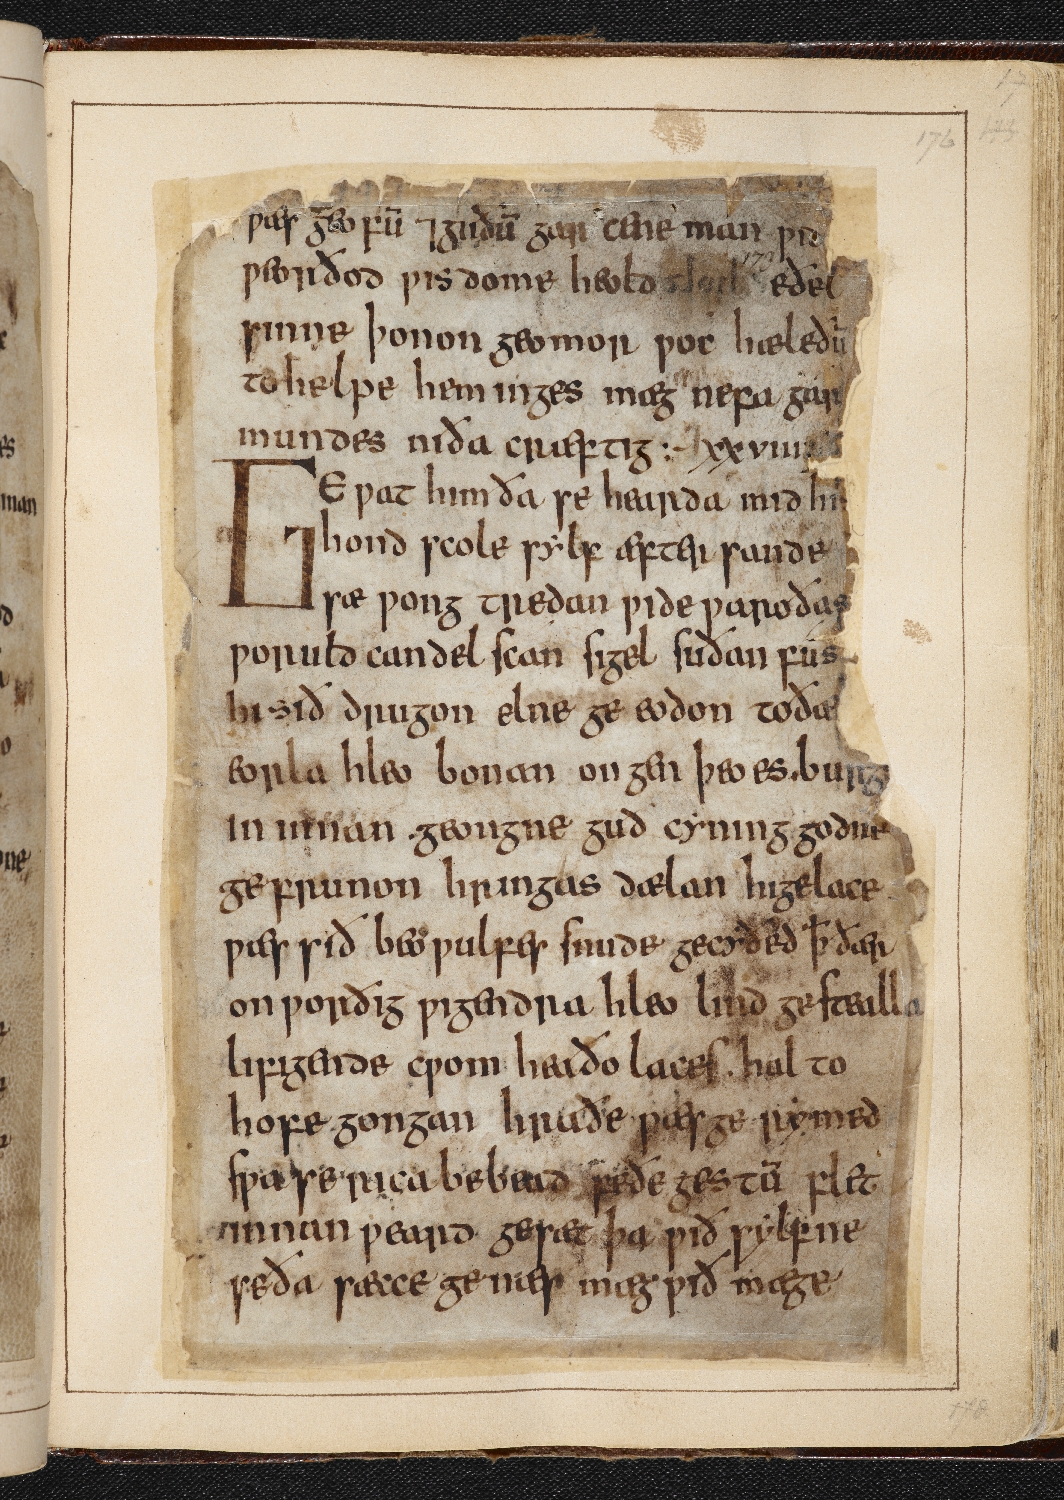 ƿæs geofū ⁊ guðū gar cene man
ƿeorðod ƿisdome heold eðel
sinne þonon geomor ƿoc hæleðū
to helpe hem inges mæg nefa gar
mundes niða cræftig :~ xxviii
GEƿat him ða se hearda mid his
hond scole sylf æfter sande
sæ ƿong tredan ƿide ƿaroðas
ƿoruld candel scan sigel suðan fus
hi sið drugon elne ge eodon to ðæs
eorla hleo bonan ongen þeoes. burg
in innan geongne guð cyning godne
gefrunon hringas dælan higelace
ƿæs sið beoƿulfes snude gecyðed ꝥ ðær
on ƿorðig ƿigendra hleo lind gestealla
lifigende cƿom heaðo laces. hal to
hofe gongan hraðe ƿæs ge rymed
sƿa se rica bebead feðe gestū flet
innan ƿeard gesæt þa ƿið sylfne
se ða sæcce ge næs mæg ƿið mæge
176
178